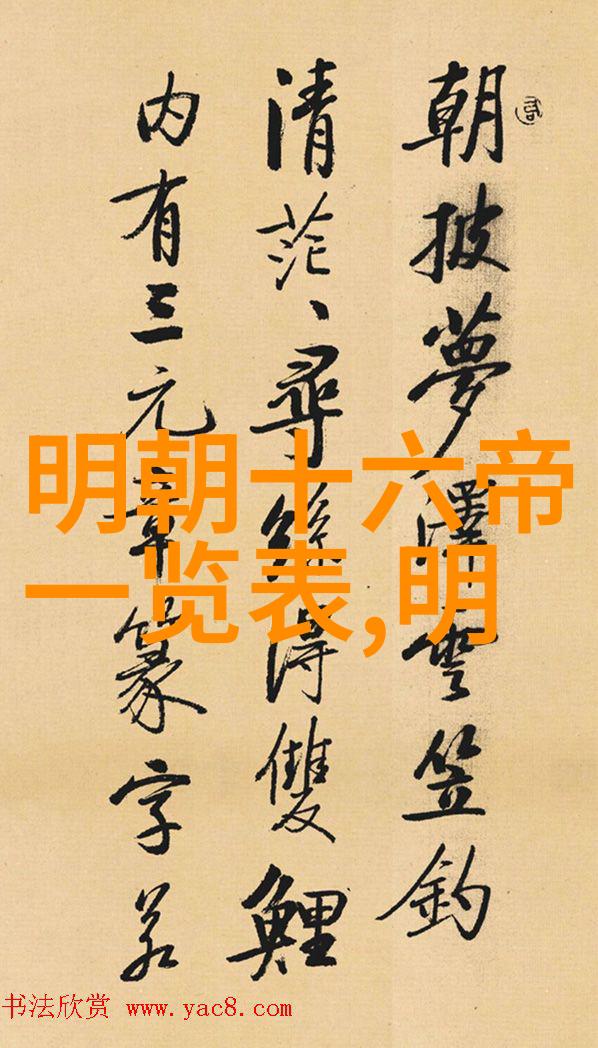 朝披夢澤雲笠釣
清茫、尋絲得雙鯉
内有三元章篆字若
明朝十六帝
一览表,明
书法欣赏 www.yac8.com